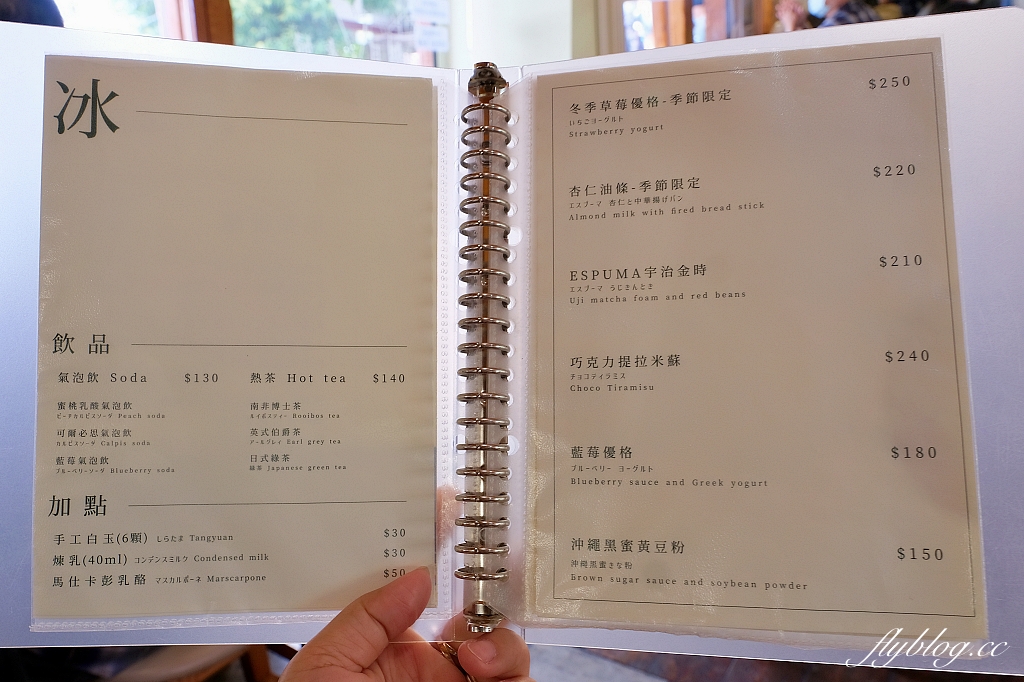 冰
飲品
氣泡飲 Soda $130
蜜桃乳酸氣泡飲
ピーチカルピスソーダ Peach soda
可爾必思氣泡飲
カルピスソーダ Calpis soda
藍莓氣泡飲
ブルーベリーソーダ Blueberry soda
熱茶 Hot tea $140
南非博士茶
ルイボスティー Rooibos tea
英式伯爵茶
アールグレイ Earl grey tea
日式綠茶
緑茶 Japanese green tea
加點
手工白玉(6顆) しらたま Tangyuan $30
煉乳(40ml) コンデンスミルク Condensed milk $30
馬仕卡彭乳酪 マスカルポーネ Marscarpone $50
冬季草莓優格-季節限定 $250
いちごヨーグルト
Strawberry yogurt
杏仁油條-季節限定 $220
エスプーマ 杏仁と中華揚げパン
Almond milk with fired bread stick
ESPUMA宇治金時 $210
エスプーマ うじきんとき
Uji matcha foam and red beans
巧克力提拉米蘇 $240
チョコティラミス
Choco Tiramisu
藍莓優格 $180
ブルーベリー ヨーグルト
Blueberry sauce and Greek yogurt
沖繩黑蜜黃豆粉 $150
沖縄黒蜜きな粉
Brown sugar sauce and soybean powder
flyblog.cc